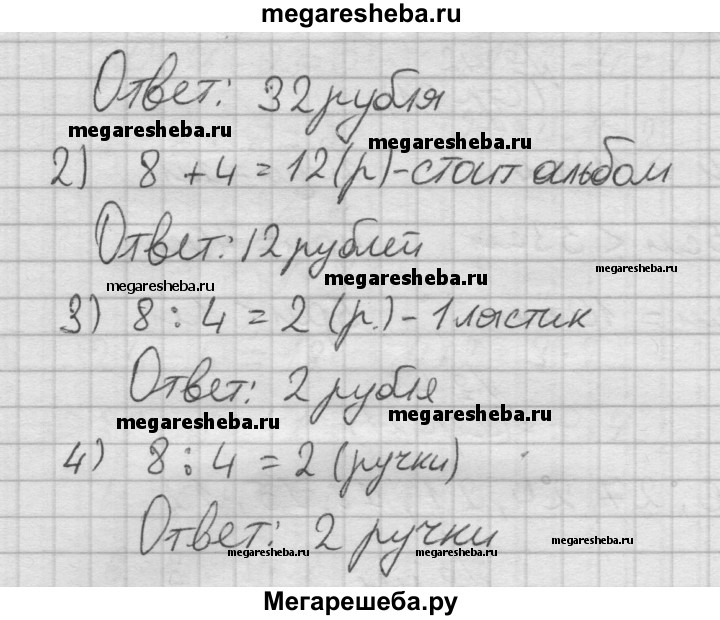 megaresheba.ru
Ответ: 32 рубля
megaresheba.ru
megaresheba.ru
2) 8 + 4 = 12 (р) - стоит альбом
Ответ: 12 рублей
megaresheba.ru
megaresheba.ru
megaresheba.ru
3) 8 : 4 = 2 (р.) - 1 ластик
Ответ: 2 рубля
megaresheba.ru
megaresheba.ru
4) 8 : 4 = 2 (ручки)
Ответ: 2 ручки
megaresheba.ru
megaresheba.ru
megaresheba.ru
Мегарешеба.ру